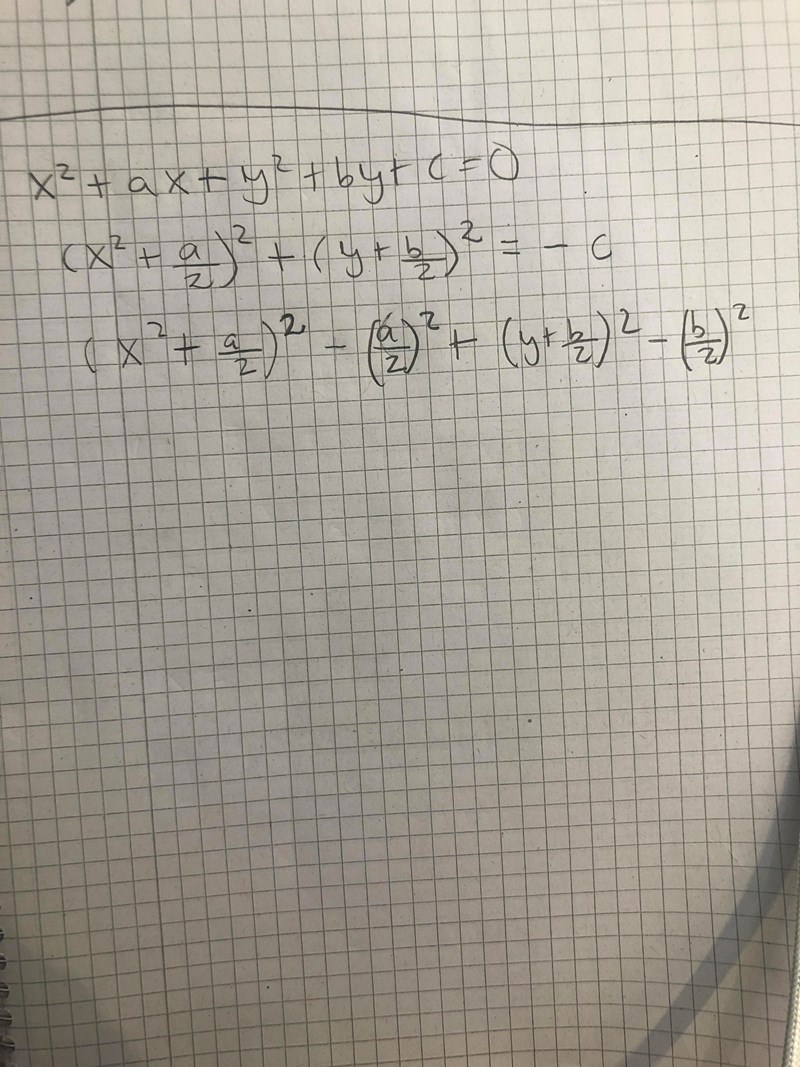 x² + ax + y² + by + c = 0
(x² + a/2)² + (y + b/2)² = - c
(x² + a/2)² - (a/2)² + (y + b/2)² - (b/2)²